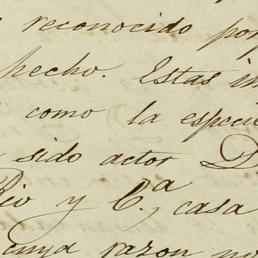 reconocido por
hecho. Estas
como la especie
sido actor D
Rio y C.ª, casa
cuya razon no